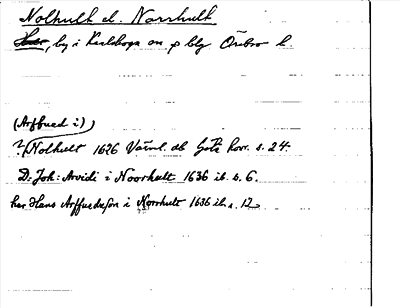 Nolhult el. Norrhult
by i Karlskoga sn o blg Örebro l.
(Arffued i)
?/Nolhult 1626 Värml. ab Götl. horr. s. 24.
D: Joh: Arvidi i Noorhult 1636 ib. s. 6.
her Hans Arffuedsson i Norrhult 1636 ib. s. 12